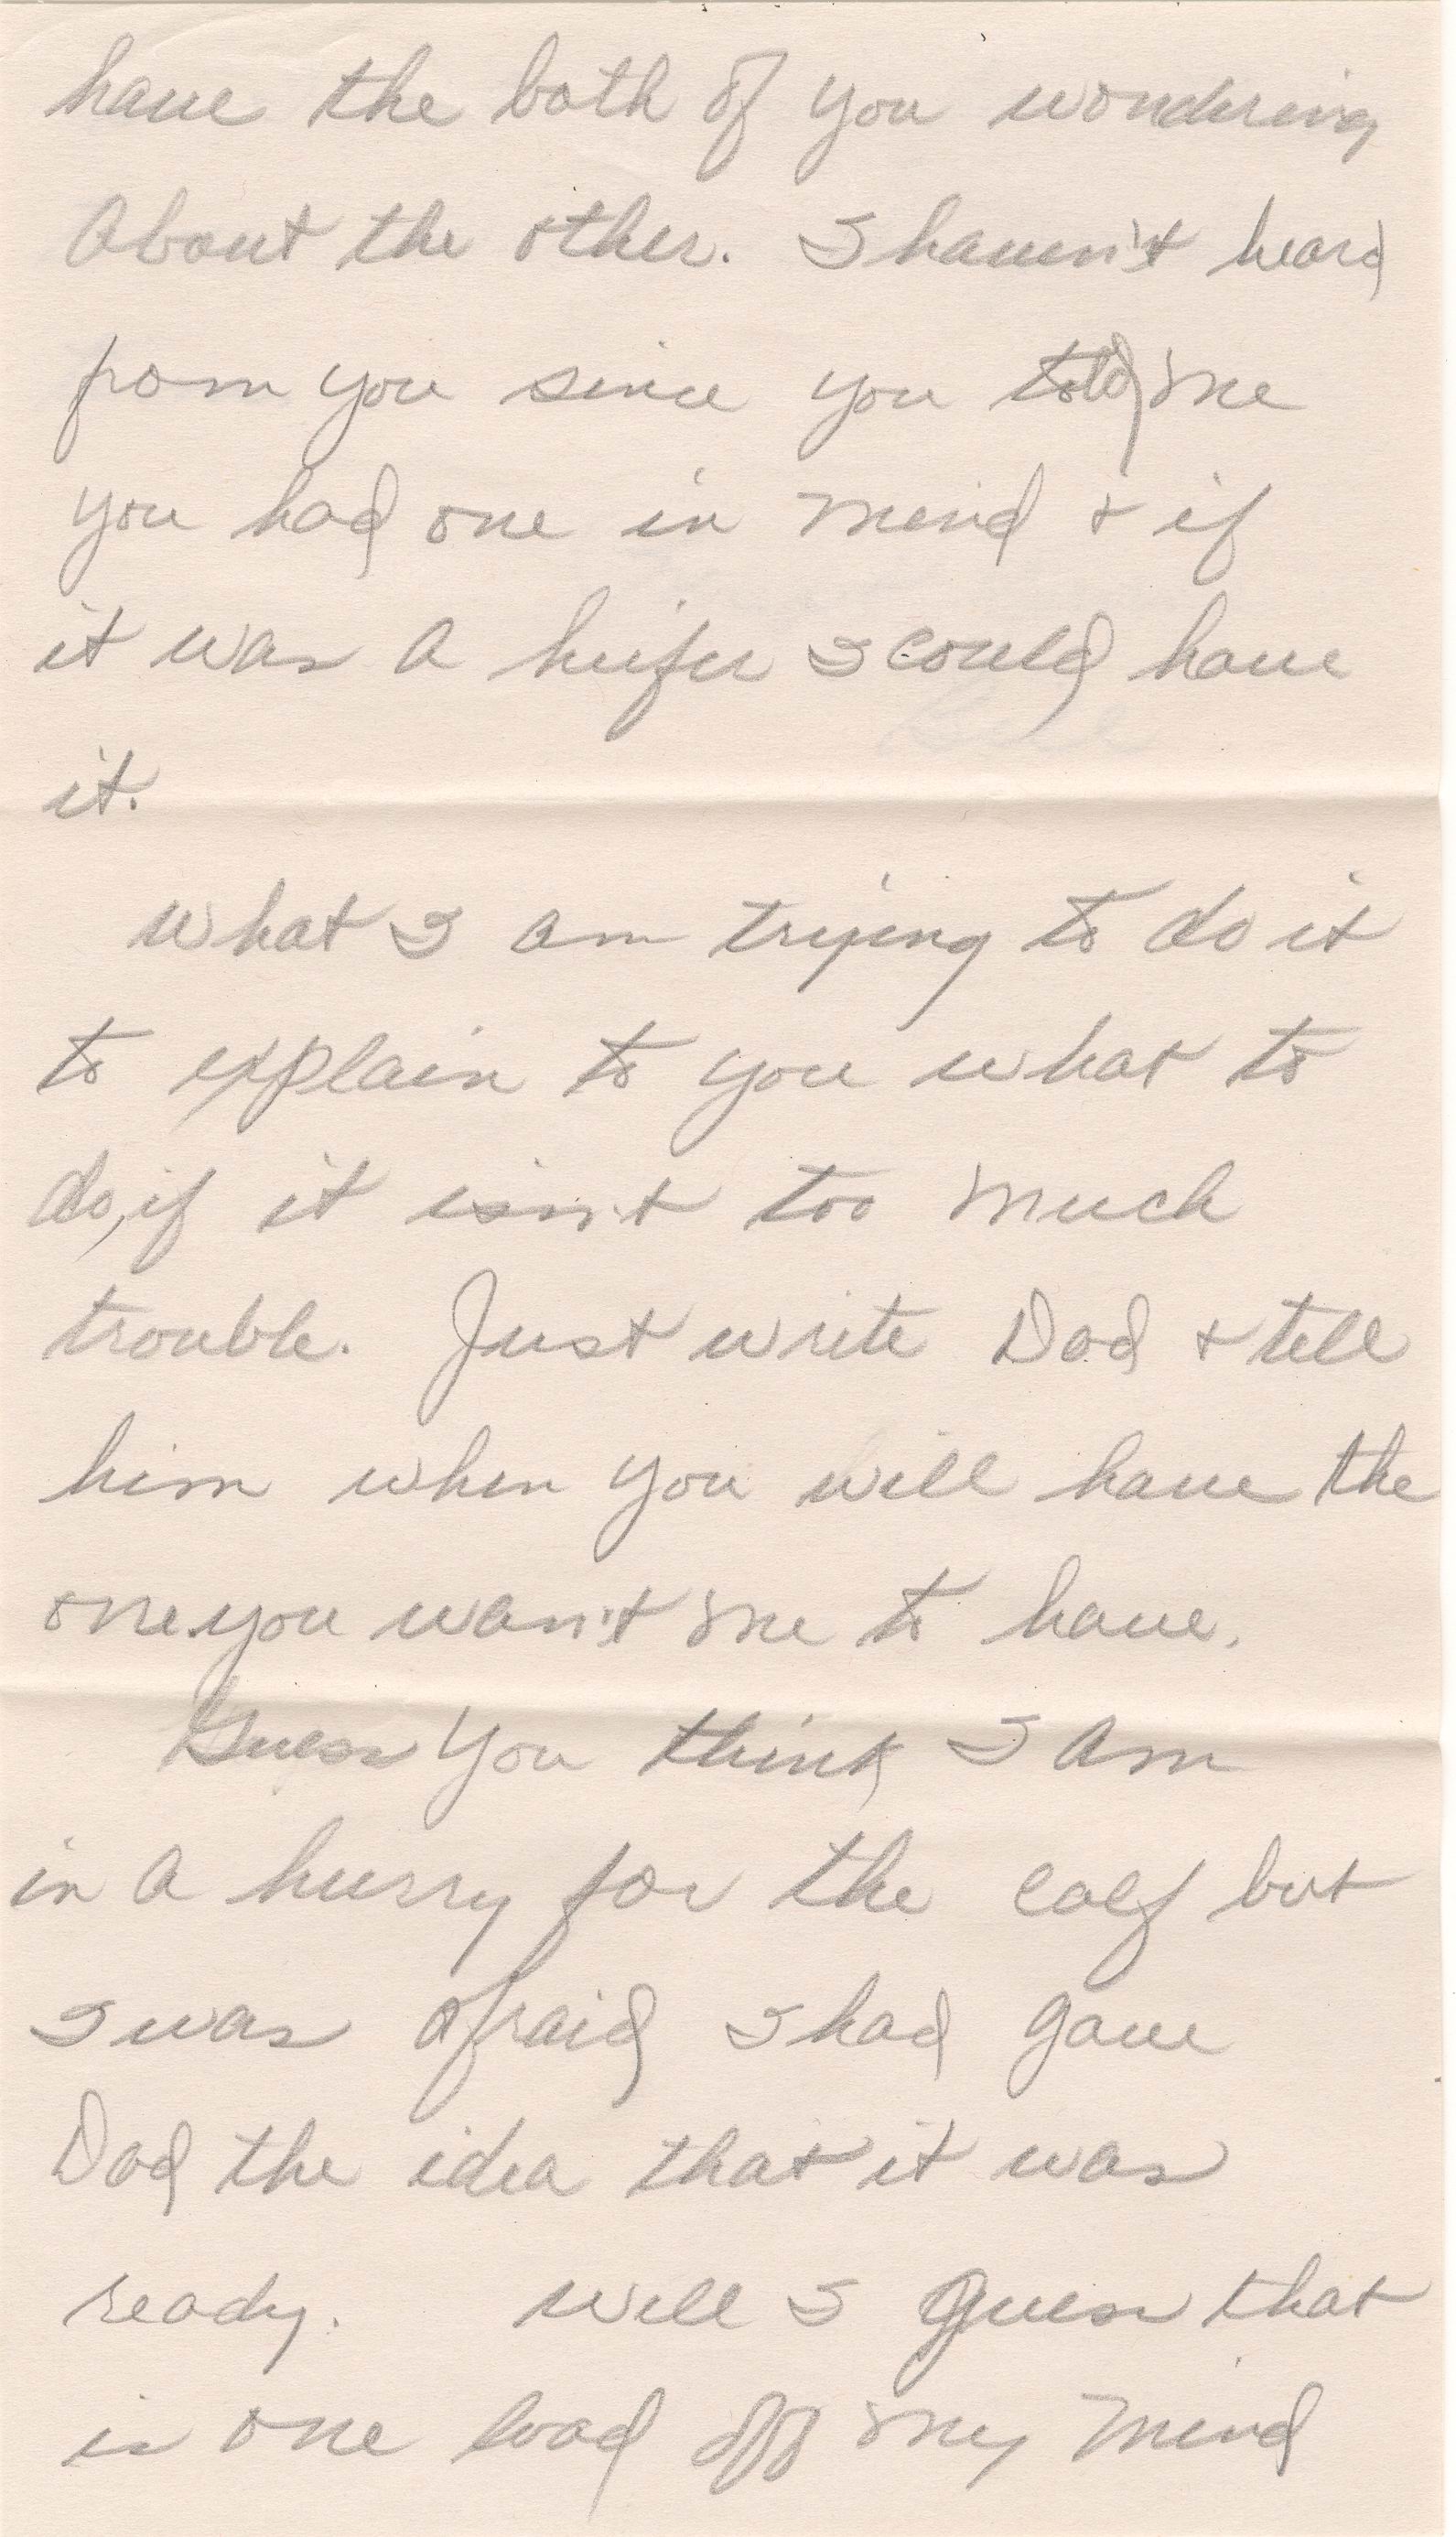 have the both of you wondering
About the other. I haven't heard
from you since you told me
you had one in mind + if
it was a heifer I could have
it.
What I am trying to do it
to explain to you what to
do, if it isn't too much
trouble. Just write Dad + tell
him when you will have the
one you wan't me to have.
Guess you think I am
in a hurry for the calf but
I was afraid I had gave
Dad the idea that it was
ready. Well I guess that
is one load off my mind